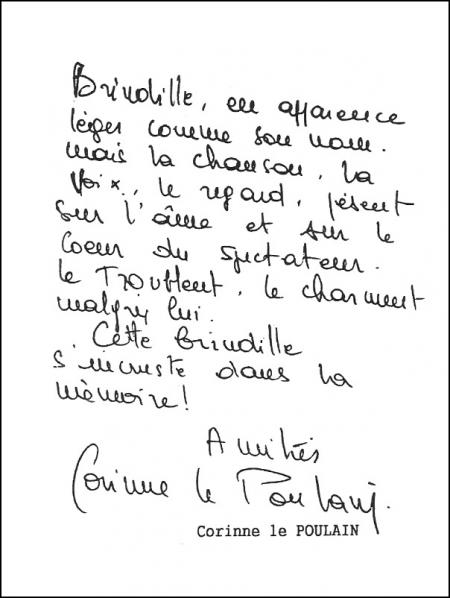 Brindille, en apparence
léger comme son nom.
mais la chanson, la
voix, le regard, pèsent
sur l'âme et sur le
Coeur du spectateur.
le Troublent, le charment
malgré lui.
Cette brindille
s'incruste dans la
mémoire!
Amitiés
Corinne le Poulain.
Corinne le POULAIN